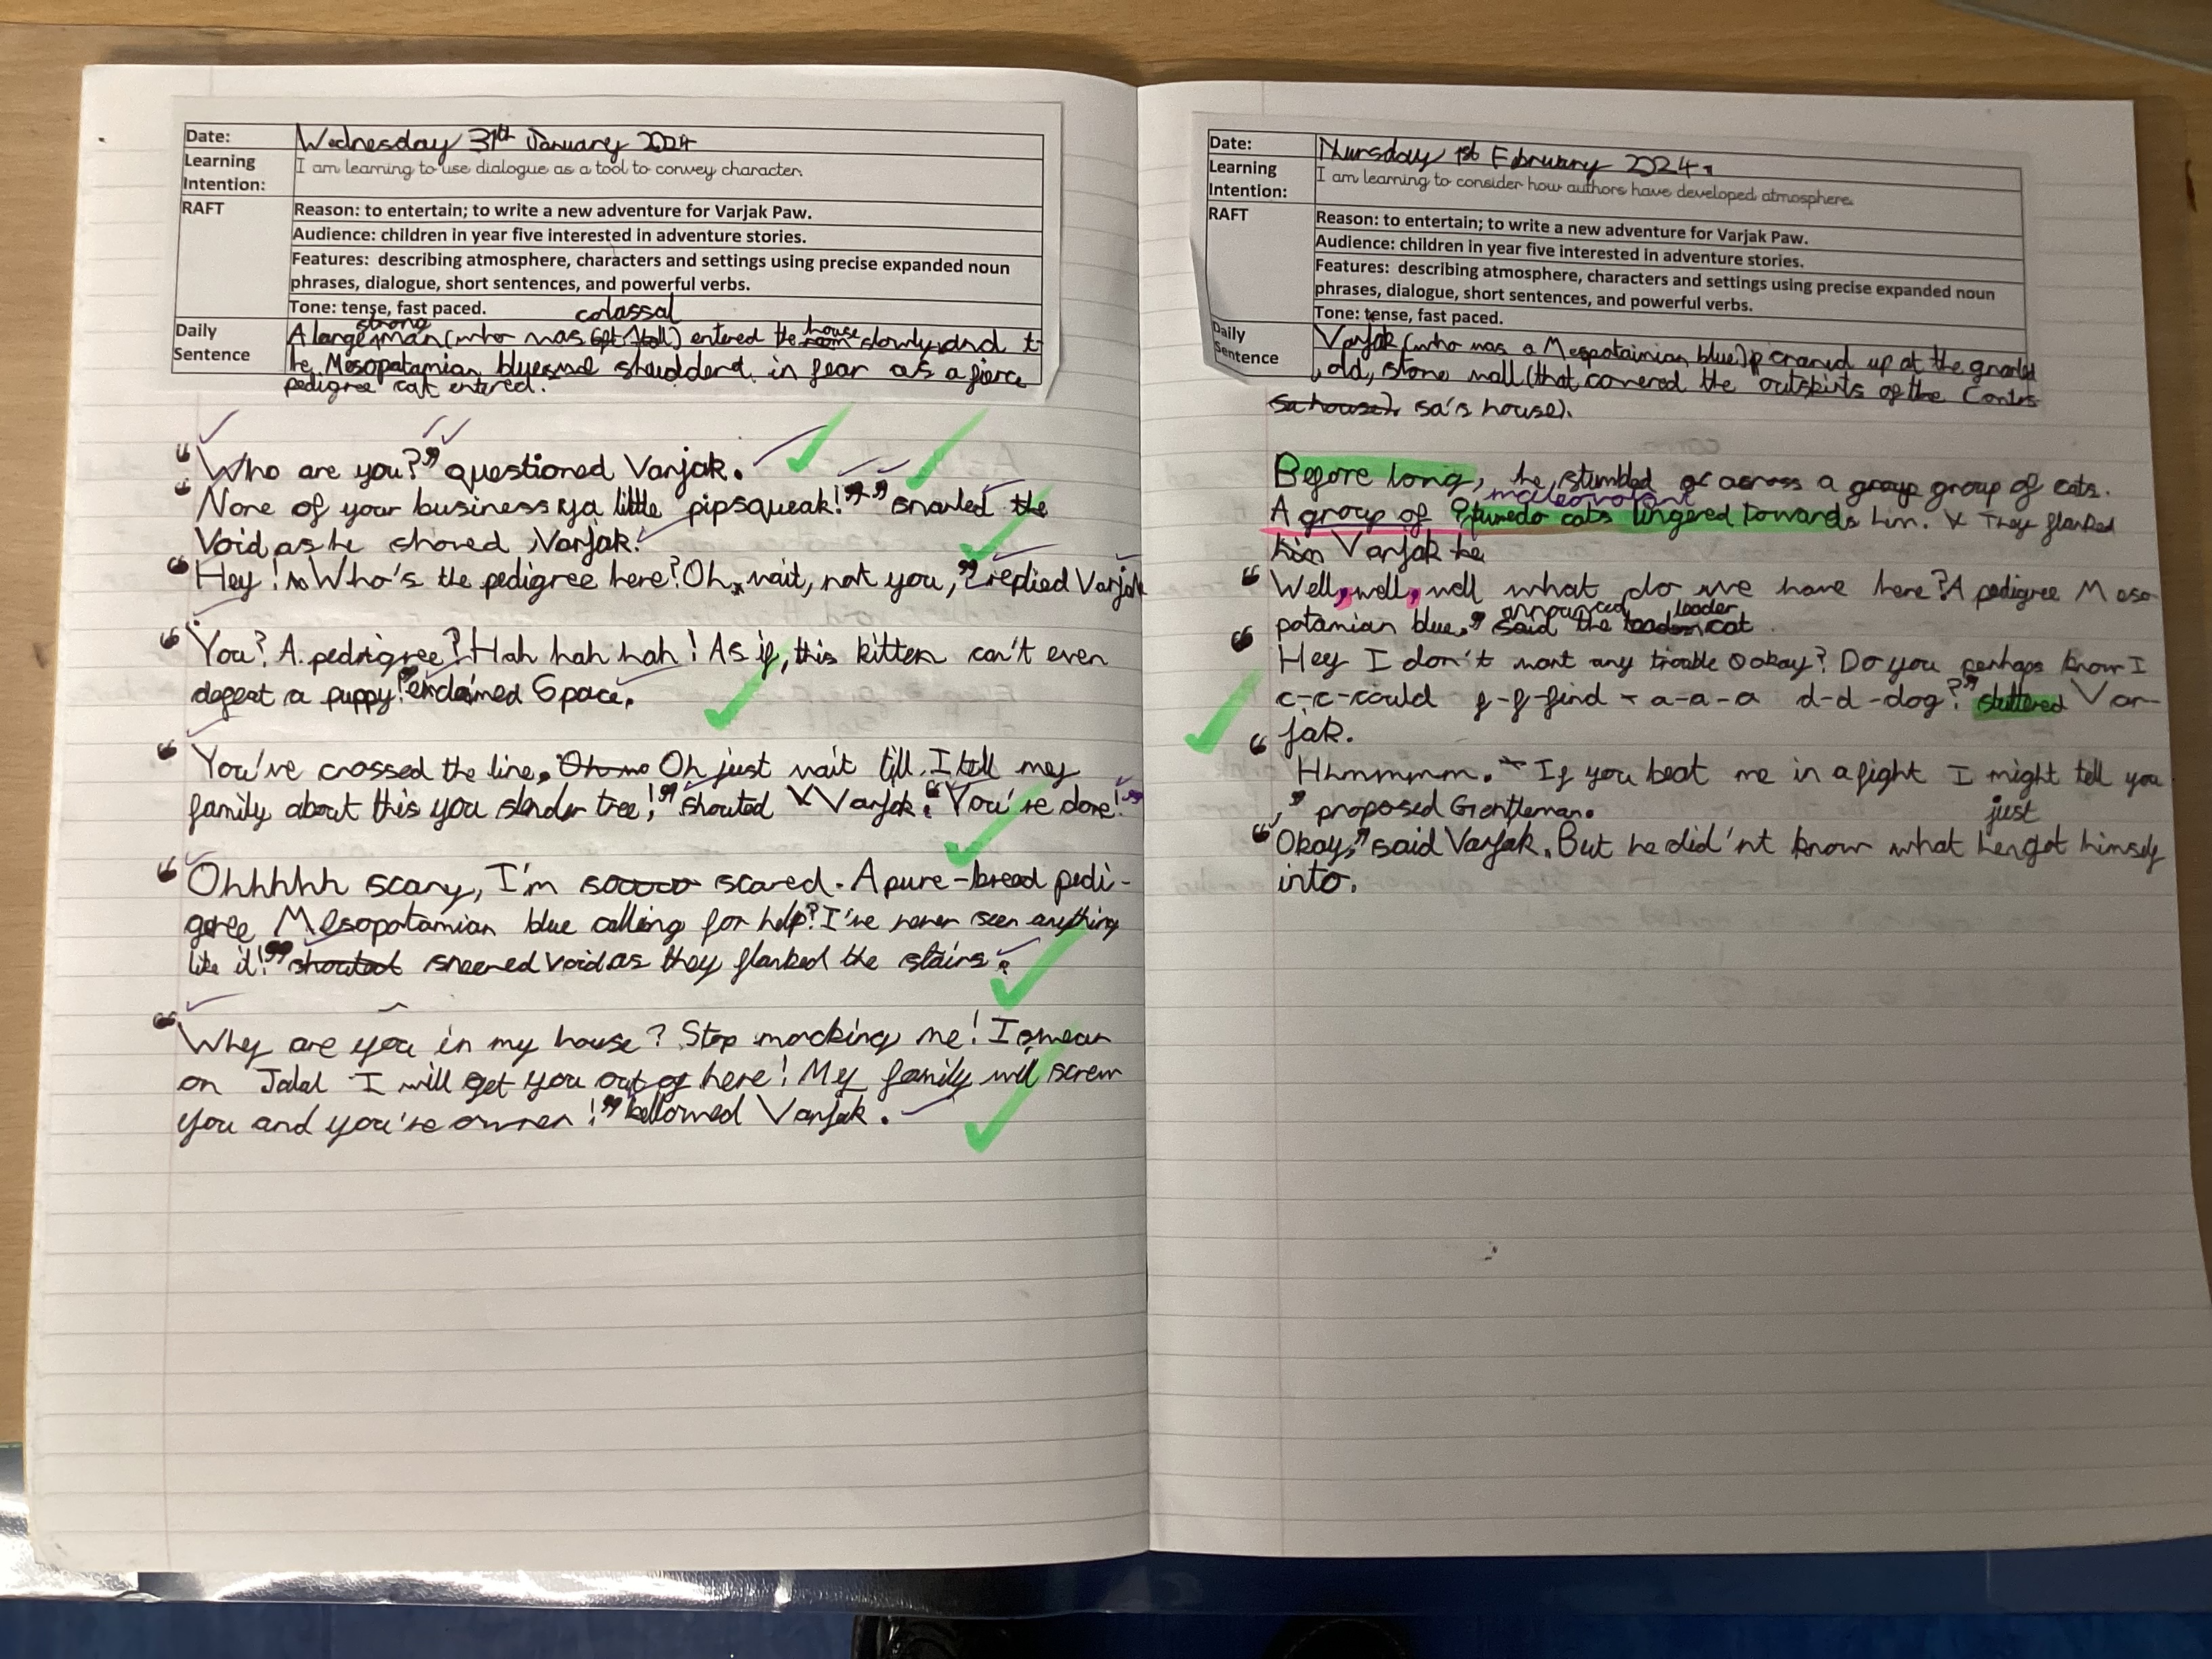 Date: Wednesday 31th January 2024
Learning Intention: I am learning to use dialogue as a tool to convey character.
RAFT
Reason: to entertain; to write a new adventure for Varjak Paw.
Audience: children in year five interested in adventure stories.
Features: describing atmosphere, characters and settings using precise expanded noun
phrases, dialogue, short sentences, and powerful verbs.
Tone: tense, fast paced.
colassal
strong house
Daily Sentence
A large man (who was 6ft tall) entered the room slowly and t
he Mesopotamian blues shudderd in fear as a fierce
pedigree cat entered.
"Who are you?" questioned Varjak.
"None of your business ya little pipsqueak!" snarled the
Void as he shoved Varjak.
"Hey! Who's the pedigree here? Oh, wait, not you," replied Varjak
"You? A pedrigree? Hah hah hah! As if, this kitten can't even
defeat a puppy!" exclaimed Space.
"You've crossed the line. Oh no Oh just wait till I tell my
family about this you slender tree!" shouted Varjak. "You're done!"
"Ohhhhh scary, I'm sooooo scared. A pure-bread pedi-
gree Mesopotamian blue calling for help? I've never seen anything
like it!" shouted sneered Void as they flanked the stairs.
"Why are you in my house? Stop mocking me! I swear
on Jalal I will get you out of here! My family will screw
you and you're owner!" bellowed Varjak.
Date: Thursday 1st February 2024.
Learning Intention: I am learning to consider how authors have developed atmosphere.
RAFT
Reason: to entertain; to write a new adventure for Varjak Paw.
Audience: children in year five interested in adventure stories.
Features: describing atmosphere, characters and settings using precise expanded noun
phrases, dialogue, short sentences, and powerful verbs.
Tone: tense, fast paced.
Daily Sentence
Varjak (who was a Mespotaimian blue) craned up at the gnarled
, old, stone wall (that covered the outskirts of the Contes
sa house). sa's house).
Before long, he stumbled across a group group of cats.
maleovolant
A group of tuxedo cats lingered towards him. They flanked
him Varjak he
"Well, well, well what do we have here? A pedigree Meso
announced leader
potamian blue," said the cat
"Hey I don't want any trouble okay? Do you perhaps know I
c-c-could f-f-find a-a-a d-d-dog?" stuttered Var-
jak.
"Hhmmmm. If you beat me in a fight I might tell you
," proposed Gentleman.
just
"Okay," said Varjak. But he did'nt know what he got himself
into.